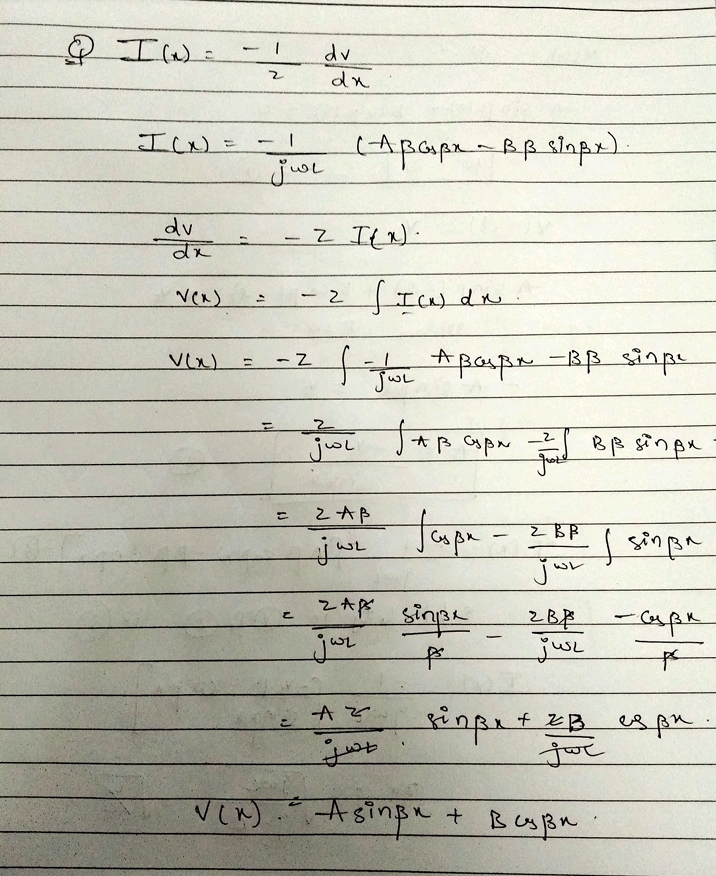 Q I(x) = -1/2 dv/dx
I(x) = -1/jωL (Aβcosβx - Bβ sinβx).
dv/dx = - Z I(x).
V(x) = - Z ∫ I(x) dx.
V(x) = -Z ∫ -1/jωL Aβcosβx - Bβ sinβx
= Z/jωL ∫Aβ cosβx - Z/jωL ∫ Bβ sinβx
= ZAβ/jωL ∫cosβx - ZBβ/jωL ∫ sinβx
= ZAβ/jωL sinβx/β - ZBβ/jωL -cosβx/β
= AZ/jωL . sinβx + ZB/jωL cosβx.
V(x) = Asinβx + Bcosβx.